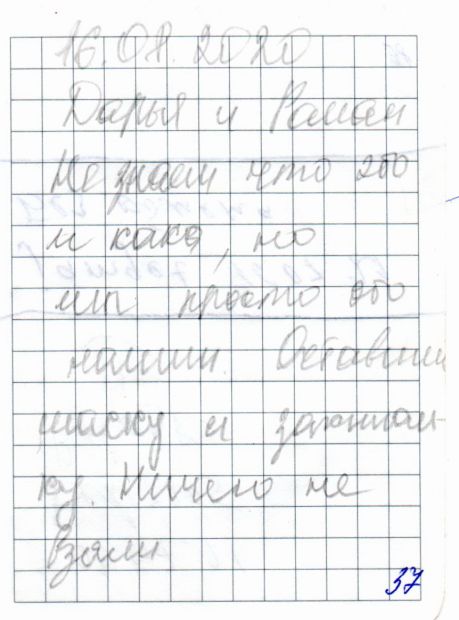 16.08.2020
Дарья и Роман
Не знаем что это
и како, но
мы просто это
нашли. Оставили
маску и зажигал-
ку. Ничего не
взяли
37